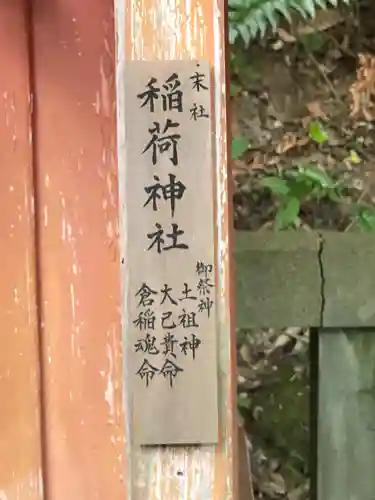 ・末社
稲荷神社
御祭神
土祖神
大己貴命
倉稲魂命